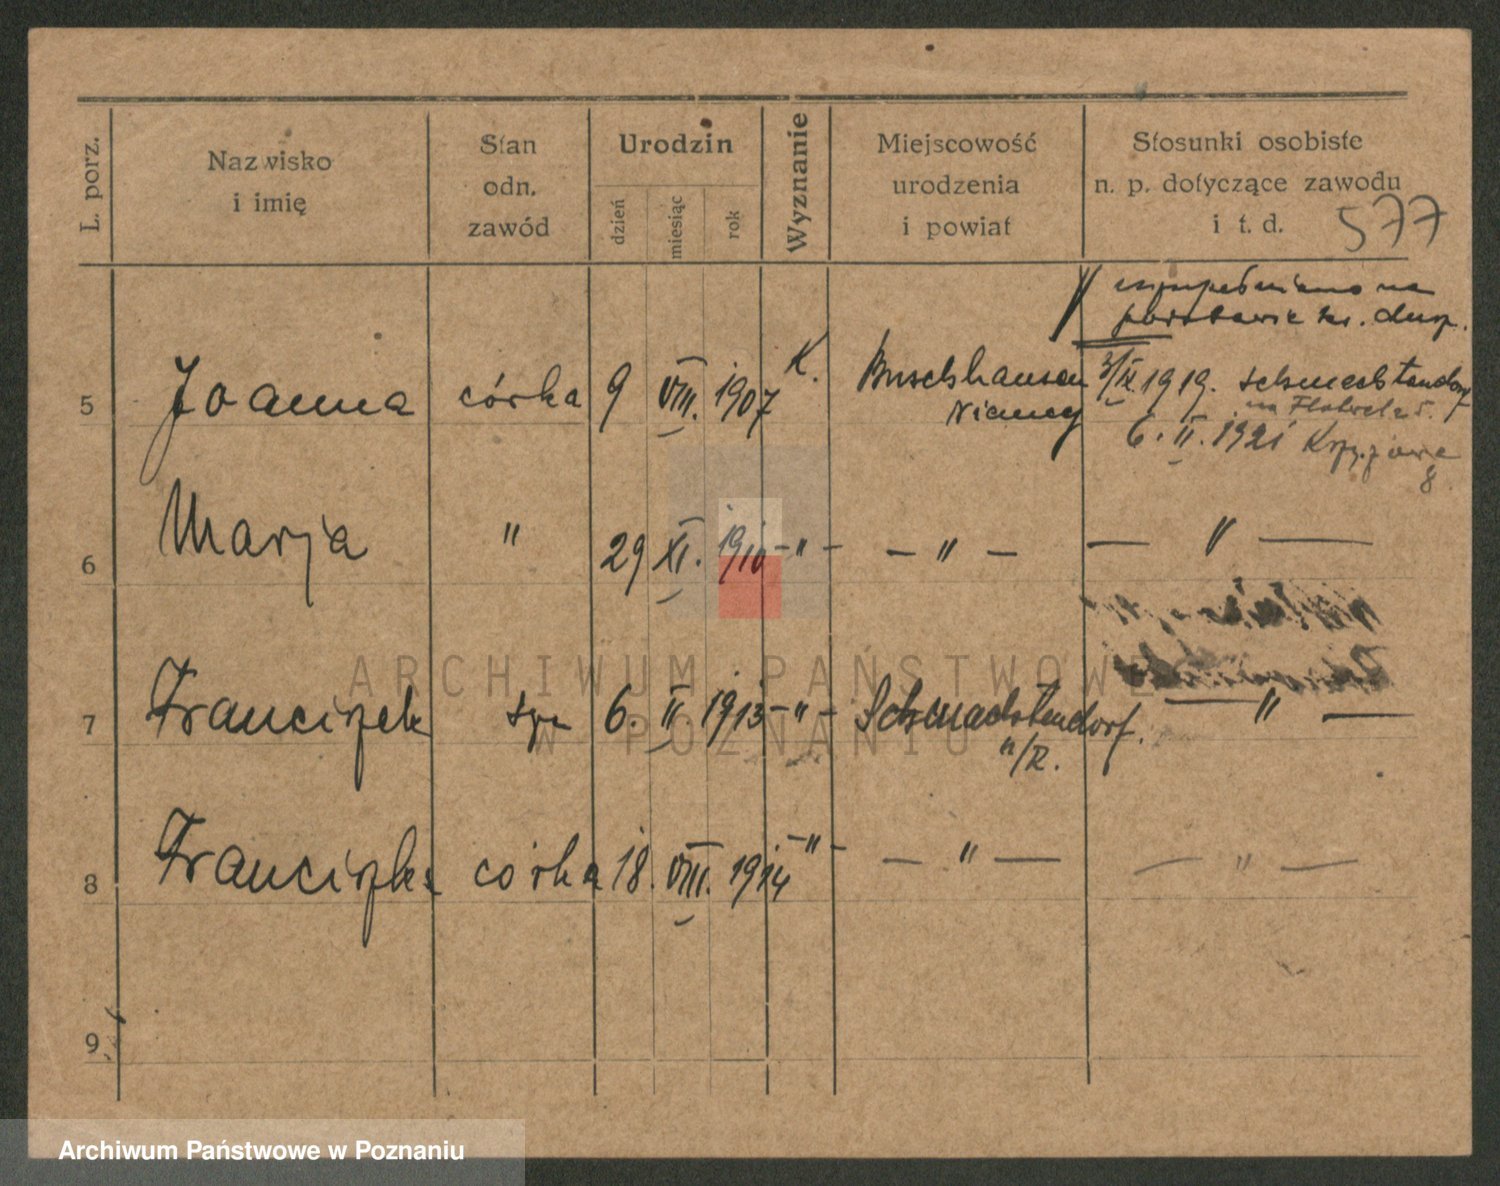 L. porz.
Nazwisko
i imię
Stan
odn.
zawód
Urodzin
dzień
miesiąc
rok
Wyznanie
Miejscowość
urodzenia
i powiat
Stosunki osobiste
n. p. dotyczące zawodu
i t. d.
577
na
5 Joanna córka 9 VIII. 1907 K. Buschhausen 3/IX. 1919. Schmachtendorf
Niemcy
6. II. 1921
8
6 Marja " 29 XI. 1910 - " - - " - - " -
7 Franciszek syn 6. II. 1913 - " - Schmachtendorf. - " -
n/R.
8 Franciszka córka 18. VIII. 1914 - " - - " - - " -
9
ARCHIWUM PAŃSTWOWE
W POZNANIU
Archiwum Państwowe w Poznaniu